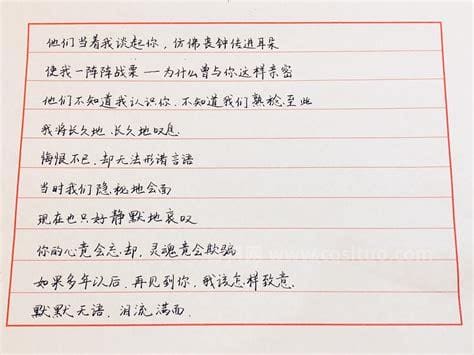 他们当着我谈起你，仿佛丧钟传进耳朵
使我一阵阵战栗——为什么曾与你这样亲密
他们不知道我认识你，不知道我们熟稔至此
我将长久地、长久地叹息
悔恨不已，却无法形诸言语
当时我们隐秘地会面
现在也只好静默地哀叹
你的心竟会忘却，灵魂竟会欺骗
如果多年以后，再见到你，我该怎样致意.
默默无语，泪流满面.
www.cositup.com